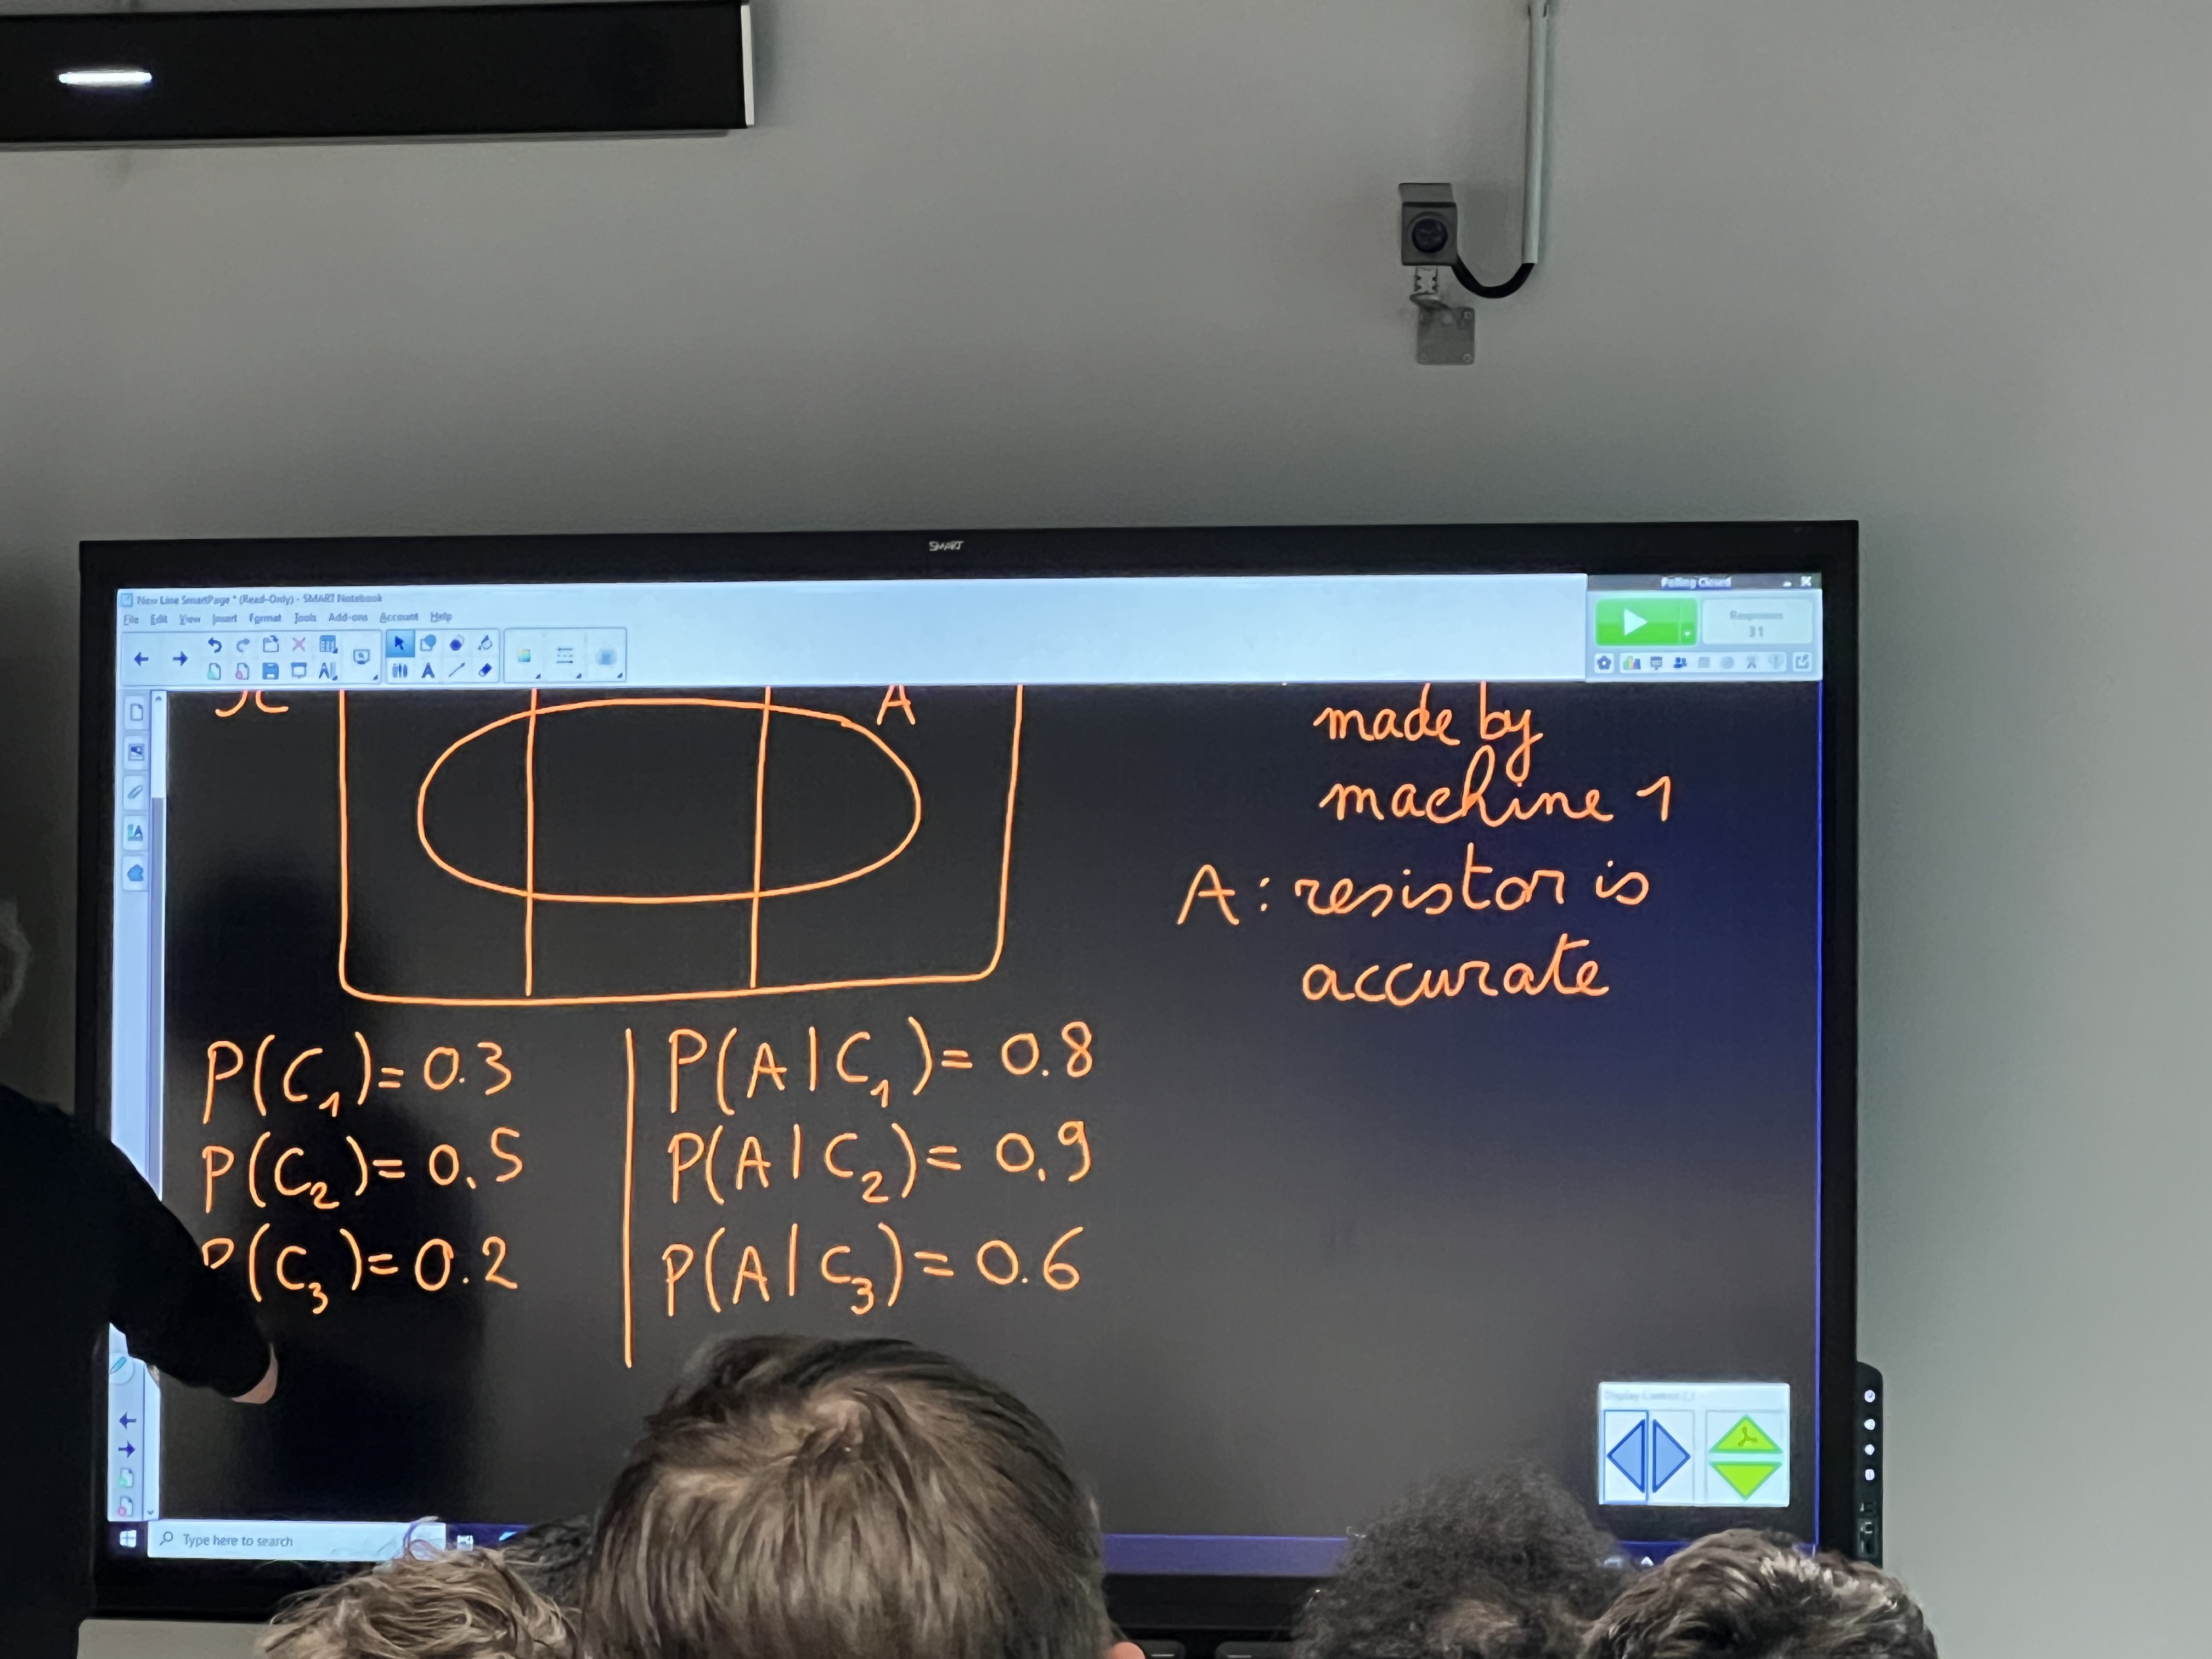 SMART
New Line SmartPage * (Read-Only) - SMART Notebook
Polling Closed
File Edit View Insert Format Tools Add-ons Account Help
Responses
31
A
made by
machine 1
A: resistor is
accurate
P(C₁)=0.3
P(A|C₁)= 0.8
P(C₂)= 0.5
P(A|C₂)= 0.9
P(C₃)=0.2
P(A|C₃)= 0.6
Type here to search